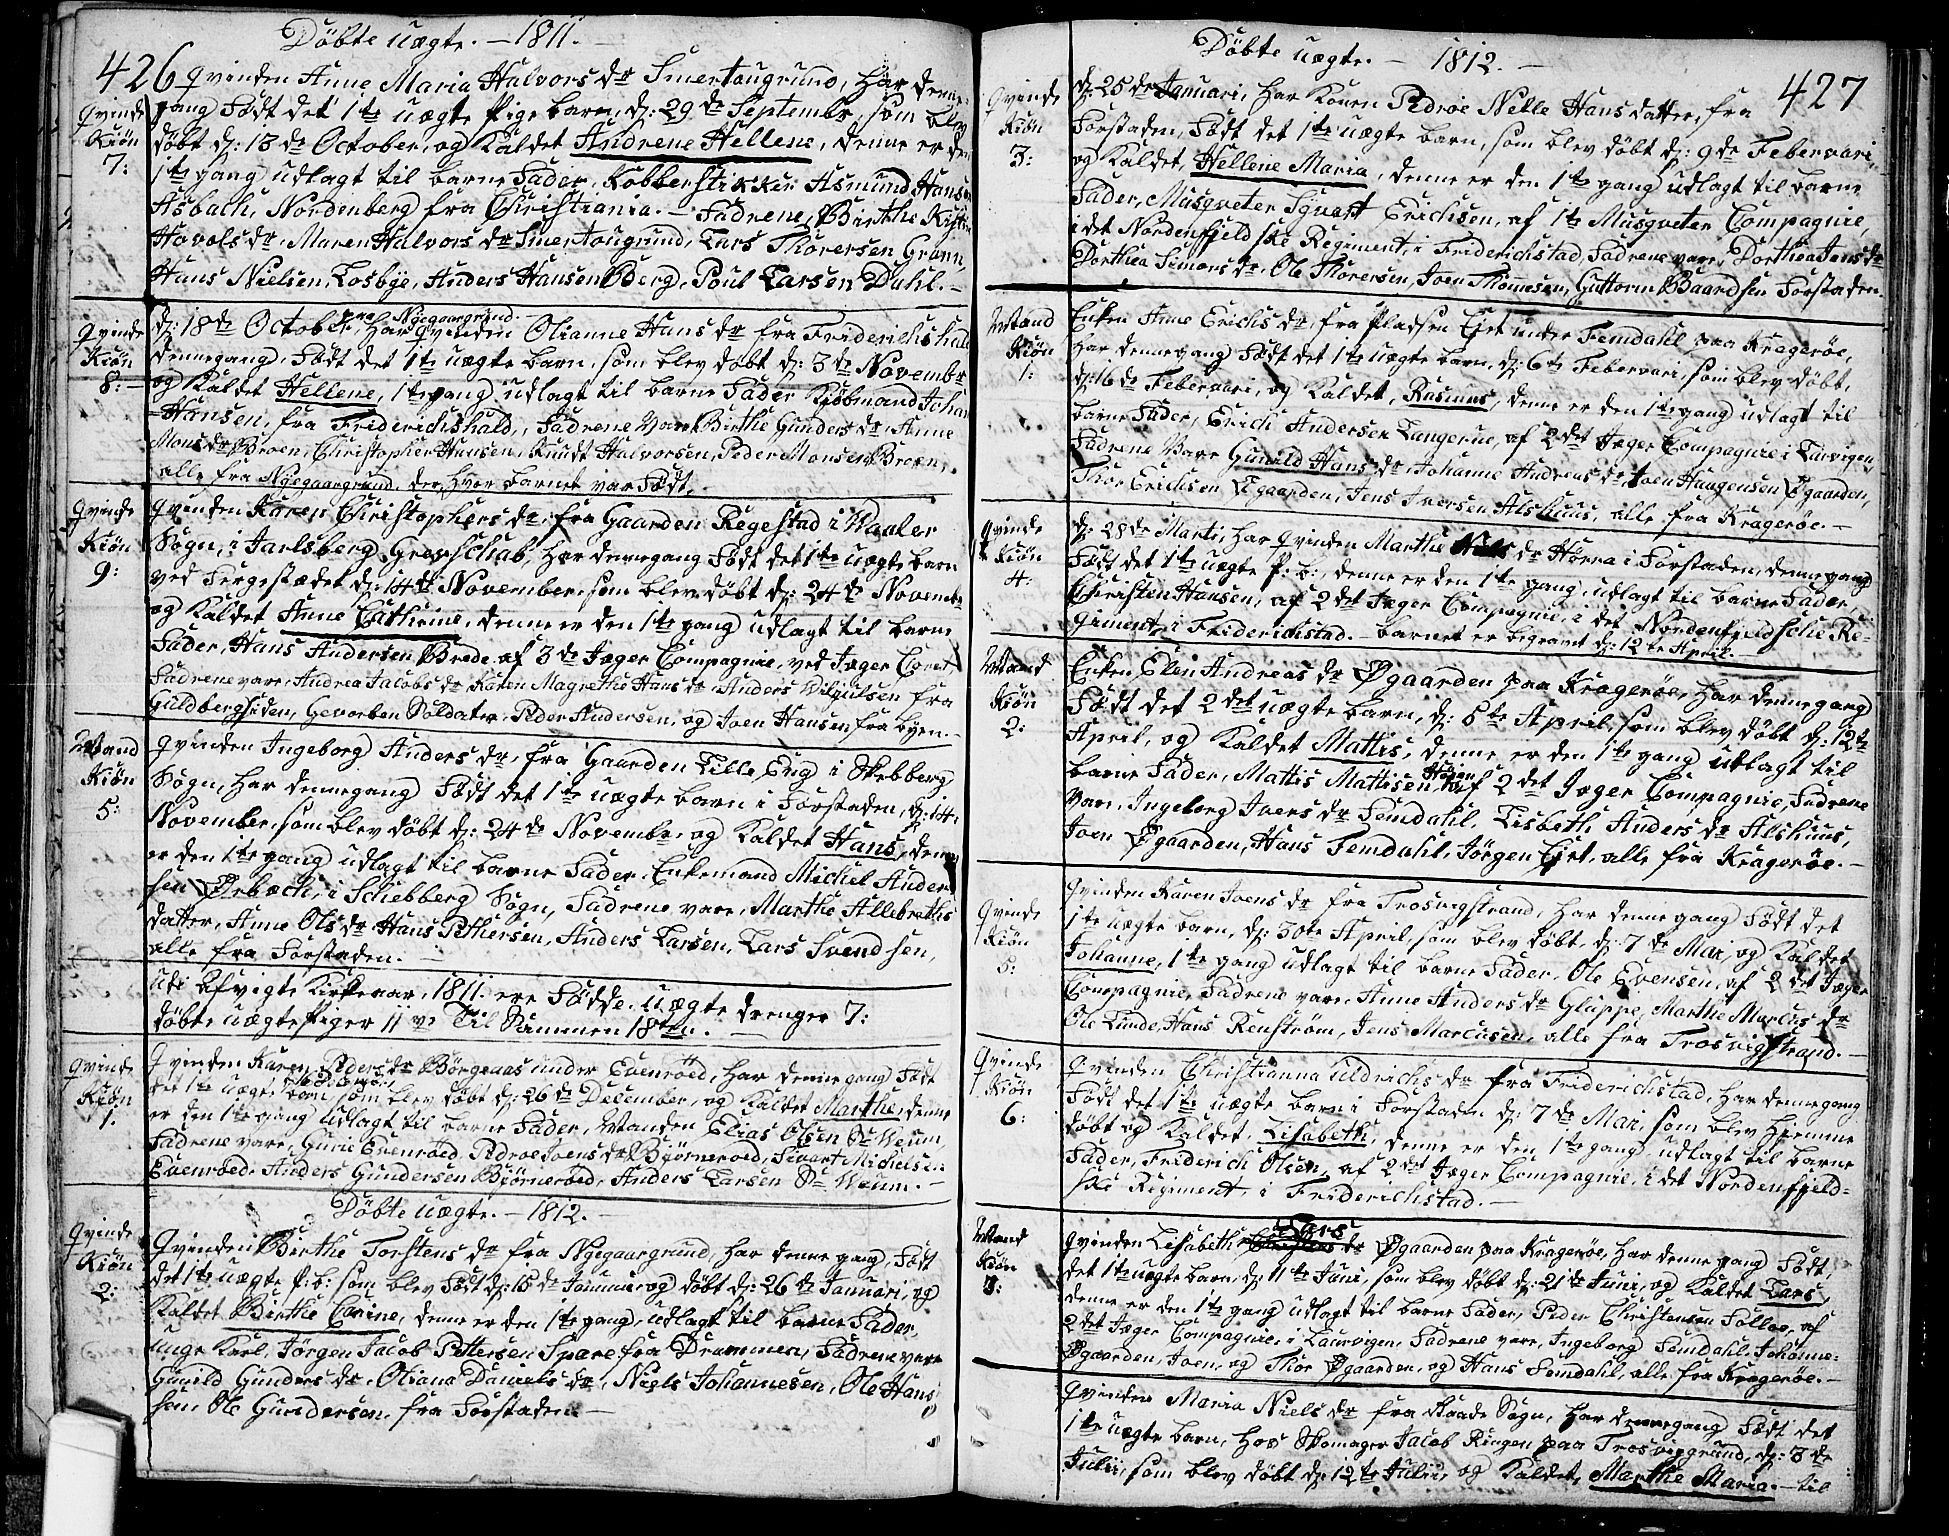 Döbte uægte. — 1811. —
426
Qvinde
Kiön
7:
Qvinden Anne Maria Halvors dr Smertougrund, har denne-
gang Födt det 1te uægte Pige barn, d: 29de Septembr, som blev
döbt d: 13de October, og Kaldet Andrene Hellene, denne er den
1te gang udlagt til barne Fader, Kobberstikker Asmund Hansen
Asbach, Nordenberg fra Christiania. — Fadrene, Birthe Kistine
Hovols dr, Maren Halvors dr Smertougrund, Lars Thorersen Grann,
Hans Nielsen, Losbÿe, Anders Hansen Berg, Poul Larsen Dahl. —
Qvinde
Kiön
8: —
paa Nÿegaargrund.
d: 18de October, har qvinden Olianne Hans dr fra Friderichshald
dennegang, Födt det 1te uægte barn, som blev döbt d: 3de Novembr
og Kaldet Hellene, 1te gang udlagt til barne Fader Kiöbmand Johan
Hansen, fra Friderichshald, Fadrene Vare Birthe Gunders dr, Anne
Mons dr Broen, Christopher Hansen, Knudt Halvorsen, Peder Monsen Broen,
alle fra Nÿegaargrund, der, hvor barnet var Födt.
Qvinde
Kiön
9:
Qvinden Karen Christophers dr, fra Gaarden Regestad i Waaler
Sogn, i Jarlsberg Grevschab, har dennegang Födt det 1te uægte barn
ved Fergestædet d: 14de November, som blev döbt d: 24de Novembr
og Kaldet Anne Cathrine, denne er den 1te gang udlagt til barne
Fader, Hans Andersen Brede af 3de Jæger Compagnie, ved Jæger Corset
Fadrene vare, Andrea Jacobs dr Karen Magrethe Hans dr Anders fra
Guldbergsiden, Gevorben Soldater, Peder Andersen, og Joen Hansen, fra byen. —
Mand
Kiön
5:
Qvinden Ingeborg Anders dr, fra Gaarden Lille Eng i Skebberg
Sogn, har dennegang Födt det 1te uægte barn i Forstaden, d: 14
November, som blev döbt d: 24de Novembr og Kaldet Hans, denne
er den 1te gang udlagt til barne Fader, Enkemand Michel Ander
sen Ørbæch, i Schebberg Sogn, Fadrene vare, Marthe Allebreths
datter, Anne Ols dr Hans Pethersen, Anders Larsen, Lars Svendsen,
alle fra Forstaden. —
Udi Afvigte Kirkeaar, 1811. ere Födde, uægte drenger 7:
döbte uægte Piger 11 Til Sammen 18ten. —
Qvinde
Kiön
1.
Qvinden Karen Peders dr Börgenas under Evenröed, har denne gang Födt
det 1te uægte barn som blev döbt d: 26de December, og Kaldet Marthe, denne
er den 1te gang udlagt til barne Fader, Manden Elias Olsen Sr Weum,
Fadrene vare, Gurie Evenröed, Pedroe Joens dr Björneröed, Sivert Michelsen
Evenröed. Anders Gundersen Björneröed, Anders Larsen Sr Weum. —
Döbte uægte. — 1812. —
Qvinde
Kiön
2:
Qvinden Birthe Torstens dr fra Nÿegaargrund, har denne gang, Födt
det 1te uægte P: b: som blev Födt d: 15de Januari og döbt d: 26de Januari, og
Kaldet Birthe Carine, denne er den 1te gang, udlagt til barne Fader,
Unge Karl, Jörgen Jacob Pettersen Spare fra Drammen, Fadrene vare
Gunild Gunders dr, Oliana Daniels dr, Niels Johannesen, Ole Han
sen, Ole Gundersen, fra Forstaden. —
Döbte uægte. — 1812. —
427
Qvinde
Kiön
3:
d: 25de Januari, har Konen Pedroe Nelle Hans datter, fra
Forstaden, Födt det 1te uægte barn, som blev döbt d: 9de Febervari,
og Kaldet, Hellene Maria, denne er den 1te gang udlagt til barne
Fader, Musqveter Sÿvert Erichsen, af 1te Musqveter Compagnie,
i det Nordenfjeldske Regiment, i Friderichstad, Fadrene vare, Dorthea Jens dr
Dorthea Simons dr, Ole Thorersen, Joen Thommesen, Guttorm Baardsen Forstaden.
Mand
Kiön
1:
Enken Anne Erichs dr, fra Pladsen Eÿet under Femdahl paa Kragerøe,
har dennegang Födt det 1te uægte barn, d: 6te Febervari, som blev döbt,
d: 16de Febervari, og Kaldet, Rasmus, denne er den 1te gang udlagt til
barne Fader, Erich Andersen Tangerue, af 2det Jæger Compagnie i Laurvigen,
Fadrene Vare Gunild Hans dr, Johanne Andreas dr, Joen Haagensen Øgaarden,
Thor Erichsen Øgaarden, Jens Iversen Alshuus, alle fra Kragerøe. —
Qvinde
Kiön
4:
d: 28de Marti, har qvinden Marthe Nils dr Horva i Forstaden, dennegang
Födt det 1te uægte P: b:, denne er den 1te gang, udlagt til barne Fader,
Christen Hansen, af 2det Jæger Compagnie, i det Nordenfjeldsche Re-
giment, i Friderichstad. — barnet er begravet d: 12te April. —
Mand
Kiön
2:
Enken Elen Andreas dr Øgaarden paa Kragerøe, har dennegang
Födt det 2det uægte barn, d: 5te April, som blev döbt d: 12te
April, og Kaldet Mattis, denne er den 1te gang udlagt til
barne Fader, Mattis Mattisen, af 2det Jæger Compagnie, Fadrene
Vare, Ingeborg Ivers dr Femdahl, Lisbeth Anders dr Alshuus,
Joen Øgaarden, Hans Femdahl, Jörgen Eÿet, alle fra Kragerøe. —
Qvinde
Kiön
5:
Qvinden Karen Joens dr fra Trosvigstrand, har denne gang Födt det
1te uægte barn, d: 30te April, som blev döbt, d: 7de Mai, og Kaldet
Johanne, 1te gang udlagt til barne Fader, Ole Evensen, af 2det Jæger
Compagnie, Fadrene vare, Anne Anders dr Gluppe, Marthe Marcus dr
Ole Lunde, Hans Renström, Jens Marcusen, alle fra Trosvigstrand. —
Qvinde
Kiön
6:
Qvinden Christianna Uldrichs dr fra Friderichstad, har dennegang
Födt det 1te uægte barn i Forstaden d: 7de Mai, som blev hiemme
döbt og Kaldet, Lisabeth, denne er den 1te gang udlagt til barne
Fader, Friderich Olsen, af 2det Jæger Compagnie, i det Nordenfjeld-
ske Regiment, i Friderichstad. —
Mand
Kiön
3:
Lars
Qvinden Lisabeth dr Øgaarden paa Kragerøe, har denne gang Födt,
det 1te uægte barn, d: 11te Juni, som blev döbt d: 21de Juni, og Kaldet Lars,
denne er den 1te gang udlagt til barne Fader, Peder Christensen Folloe, af
2det Jæger Compagnie, i Laurvigen, Fadrene vare, Ingeborg Femdahl, Johanne
Øgaarden, Joen, og Thor Øgaarden, og Hans Femdahl, alle fra Kragerøe. —
Qvinden Maria Niels dr fra Raade Sogn, har dennegang Födt det
1te uægte barn, hos Skomager Jacob Ringen paa Trosvigegrund, d: 3de
Julii, som blev döbt d: 12te Julii, og Kaldet, Marthe Maria. — til